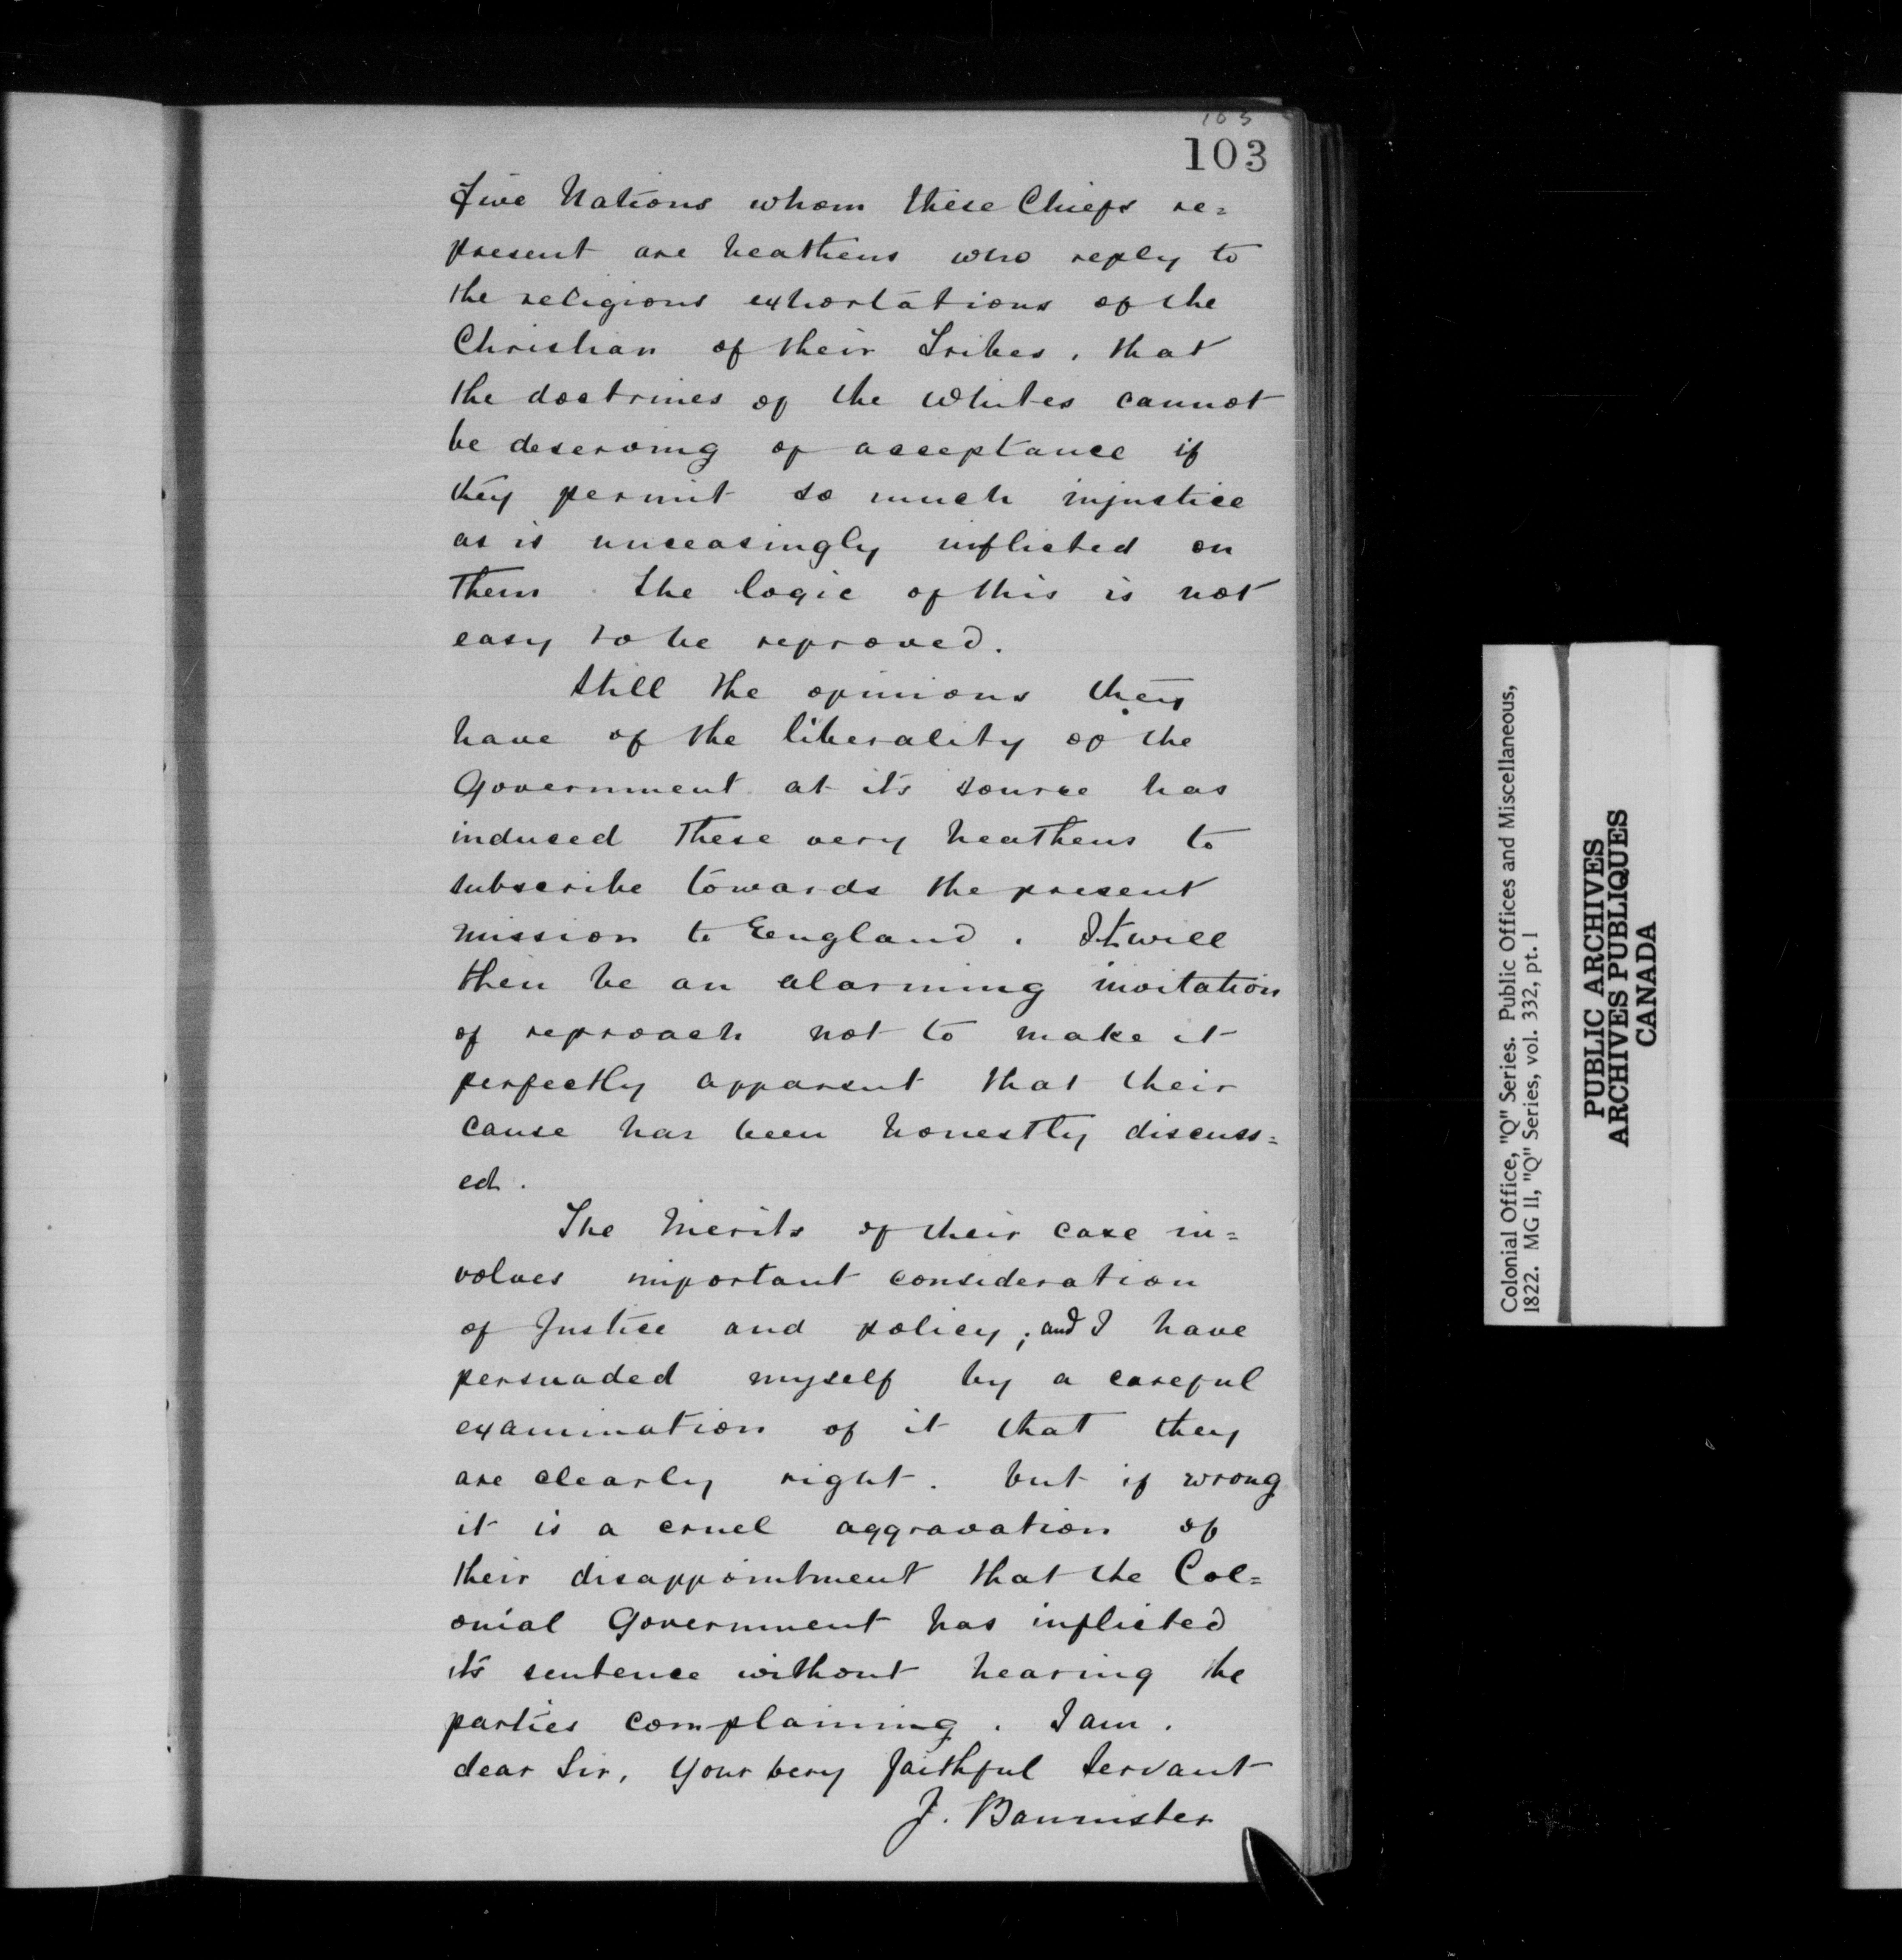 103
103
Five Nations whom these Chiefs re=
present are heathens who reply to
the religious exhortations of the
Christian of their Tribes, that
the doctrines of the Whites cannot
be deserving of acceptance if
they permit so much injustice
as is unceasingly inflicted on
them. The logic of this is not
easy to be reproved.
Still the opinions they
have of the liberality of the
Government at its source has
induced these very heathens to
subscribe towards the present
mission to England. It will
then be an alarming invitation
of reproach not to make it
perfectly apparent that their
cause has been honestly discuss=
ed.
The Merits of their case in=
volves important consideration
of Justice and policy; and I have
persuaded myself by a careful
examination of it that they
are clearly right. but if wrong
it is a cruel aggravation of
their disappointment that the Col=
onial Government has inflicted
its sentence without hearing the
parties complaining. I am.
dear Sir, Your very faithful Servant
J. Bannister
Colonial Office, "Q" Series. Public Offices and Miscellaneous,
1822. MG 11, "Q" Series, vol. 332, pt. 1
PUBLIC ARCHIVES
ARCHIVES PUBLIQUES
CANADA